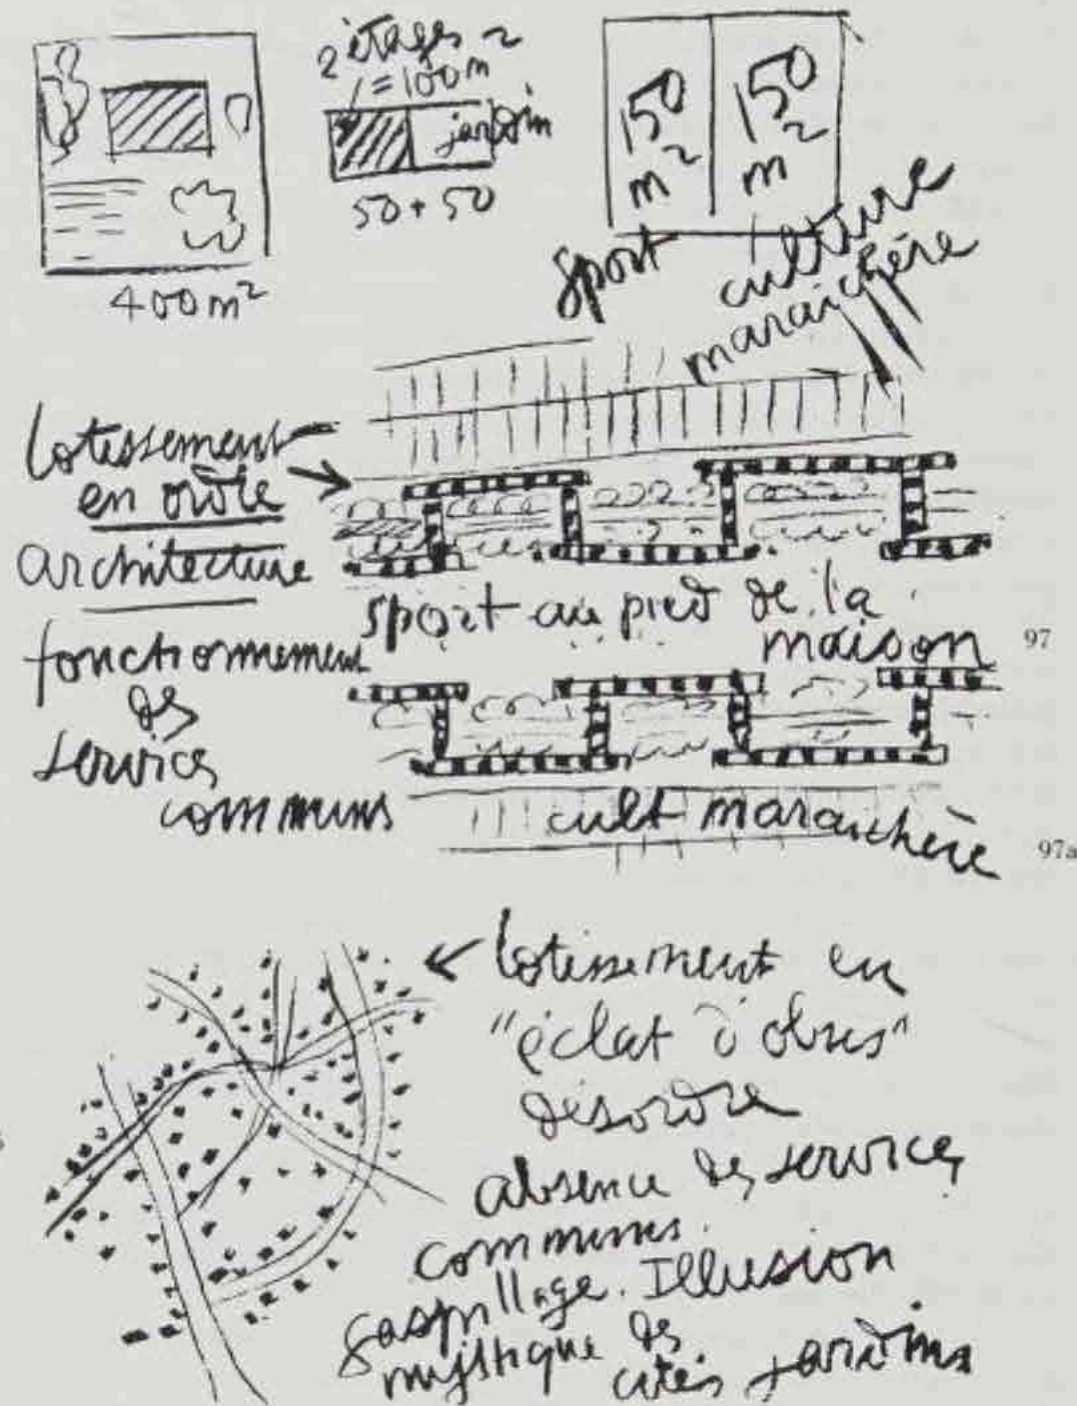 400 m²
2 étages
= 100 m²
jardin
50 + 50
150
m²
150
m²
sport
culture
maraichère
lotissement
en ordre
architecture
fonctionnement
des
services
communs
sport au pied de la
maison
97
cult maraichère
97a
lotissement en
"éclat d'obus"
désordre
absence des services
communs.
gaspillage. Illusion
mystique des
cités jardins